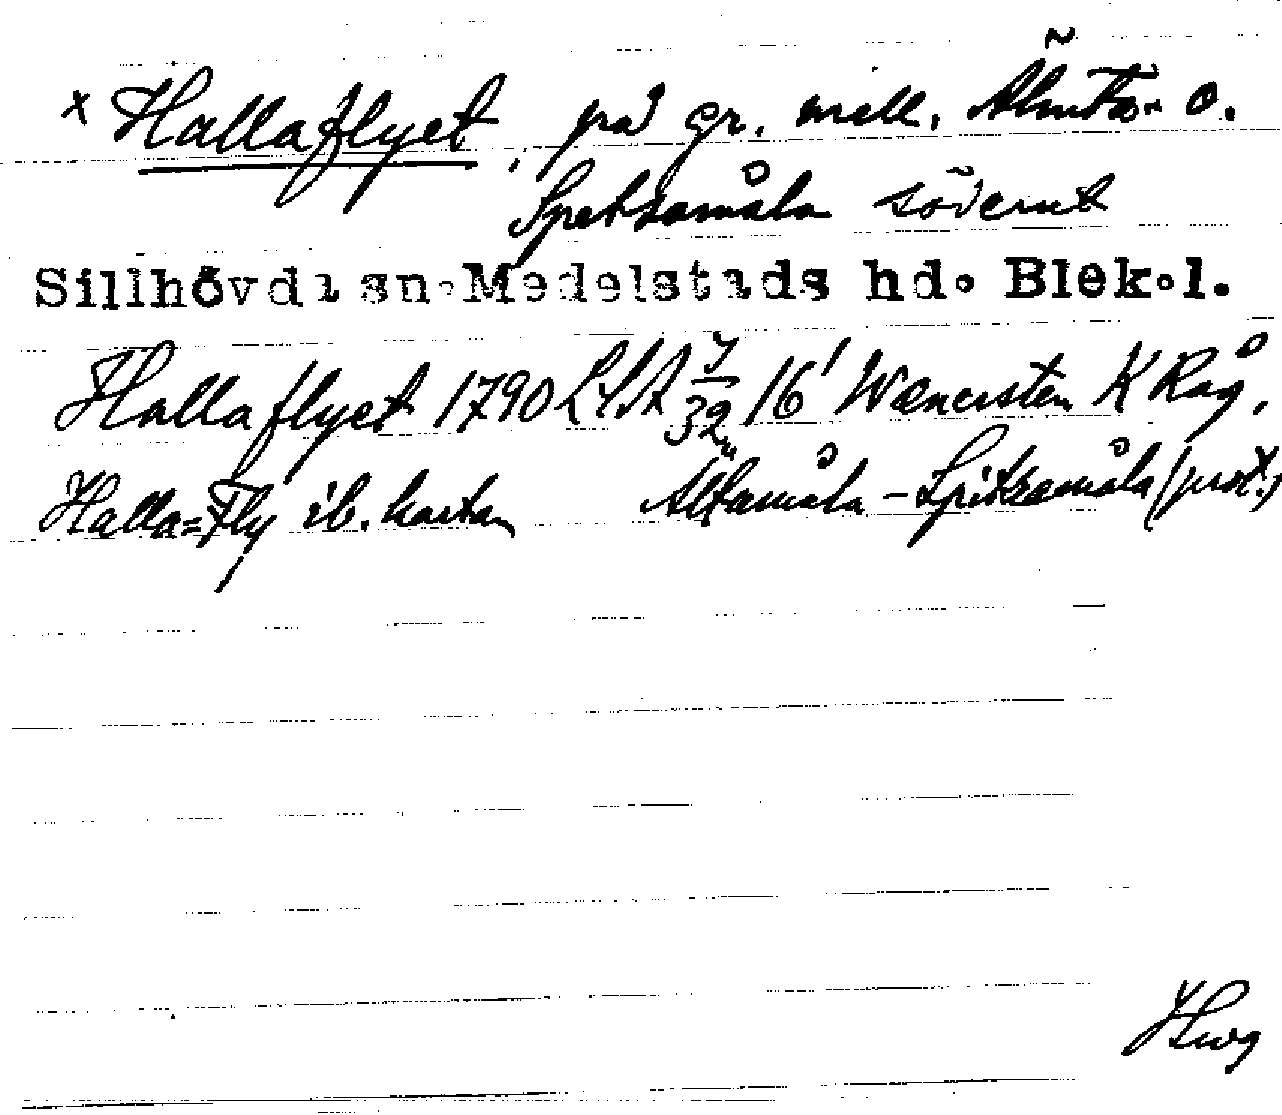 x Hallaflyet, på gr. mell. Älmta- o.
Spetsamåla söderut
Sillhövda sn. Medelstads hd. Blek.l.
Hallaflyet 1790 LSA 7/32 16' Wænersten K Råg,
Halla=Fly ib. kartan Älftamåla - Spitsamåla (prot.)